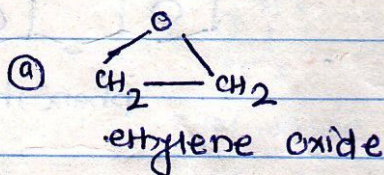 O
(a) CH2 — CH2
ethylene oxide